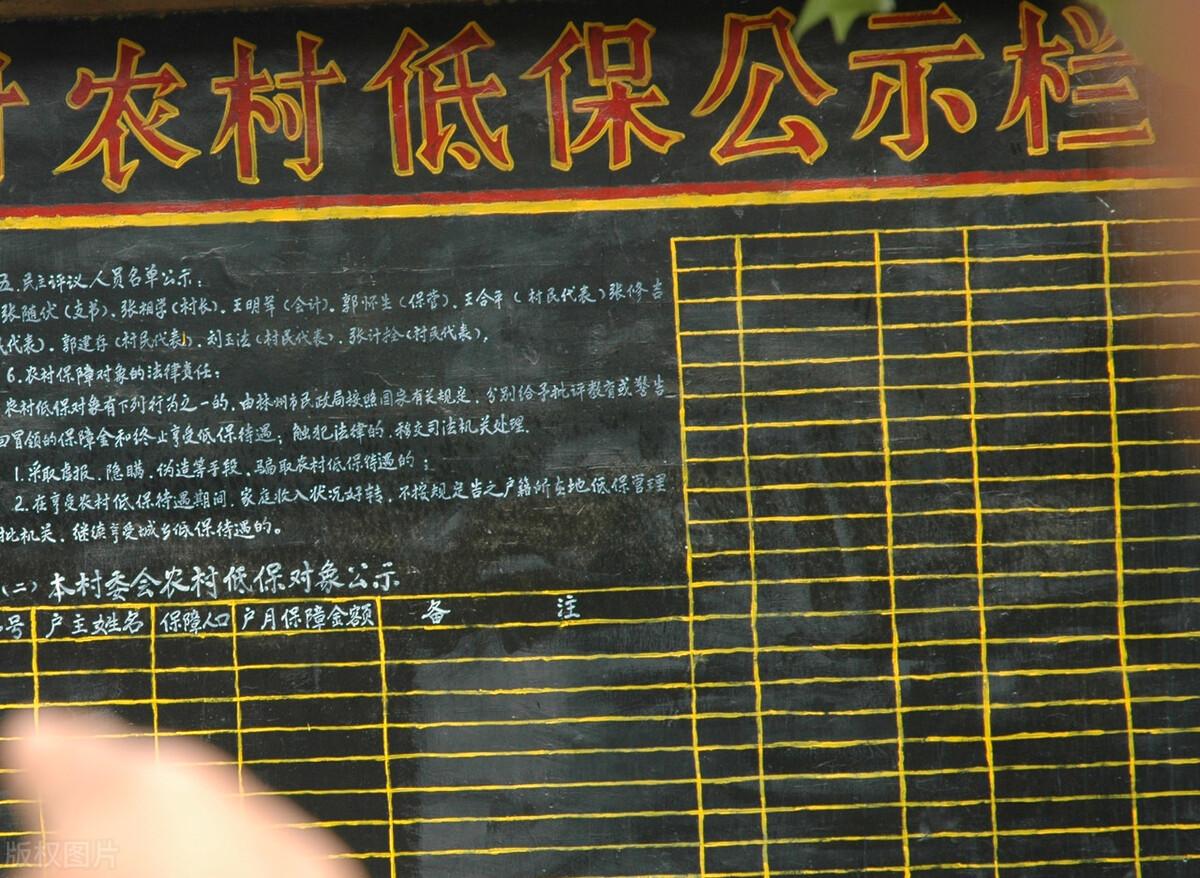 村农村低保公示栏
五.民主评议人员名单公示：
张随伏(支书).张相学(村长).王明军(会计).郭怀生(保管).王合平(村民代表)张修吉
民代表).郭建存(村民代表).刘玉法(村民代表).张计拴(村民代表).
6.农村保障对象的法律责任：
农村低保对象有下列行为之一的.由林州市民政局按照国家有关规定.分别给予批评教育或警告
回冒领的保障金和终止享受低保待遇；触犯法律的.移交司法机关处理.
1.采取虚报.隐瞒.伪造等手段.骗取农村低保待遇的；
2.在享受农村低保待遇期间.家庭收入状况好转.不按规定告之户籍所在地低保管理
批机关.继续享受城乡低保待遇的。
(二)本村委会农村低保对象公示
号 户主姓名 保障人口 户月保障金额 备注
版权图片